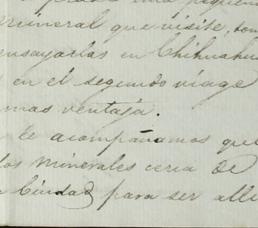 mineral que visite, tom
ensayarlas en Chihuahu
en el segundo viage
mas ventaja.
le acompañamos que
los minerales ceria de
Ciudad para ser alli